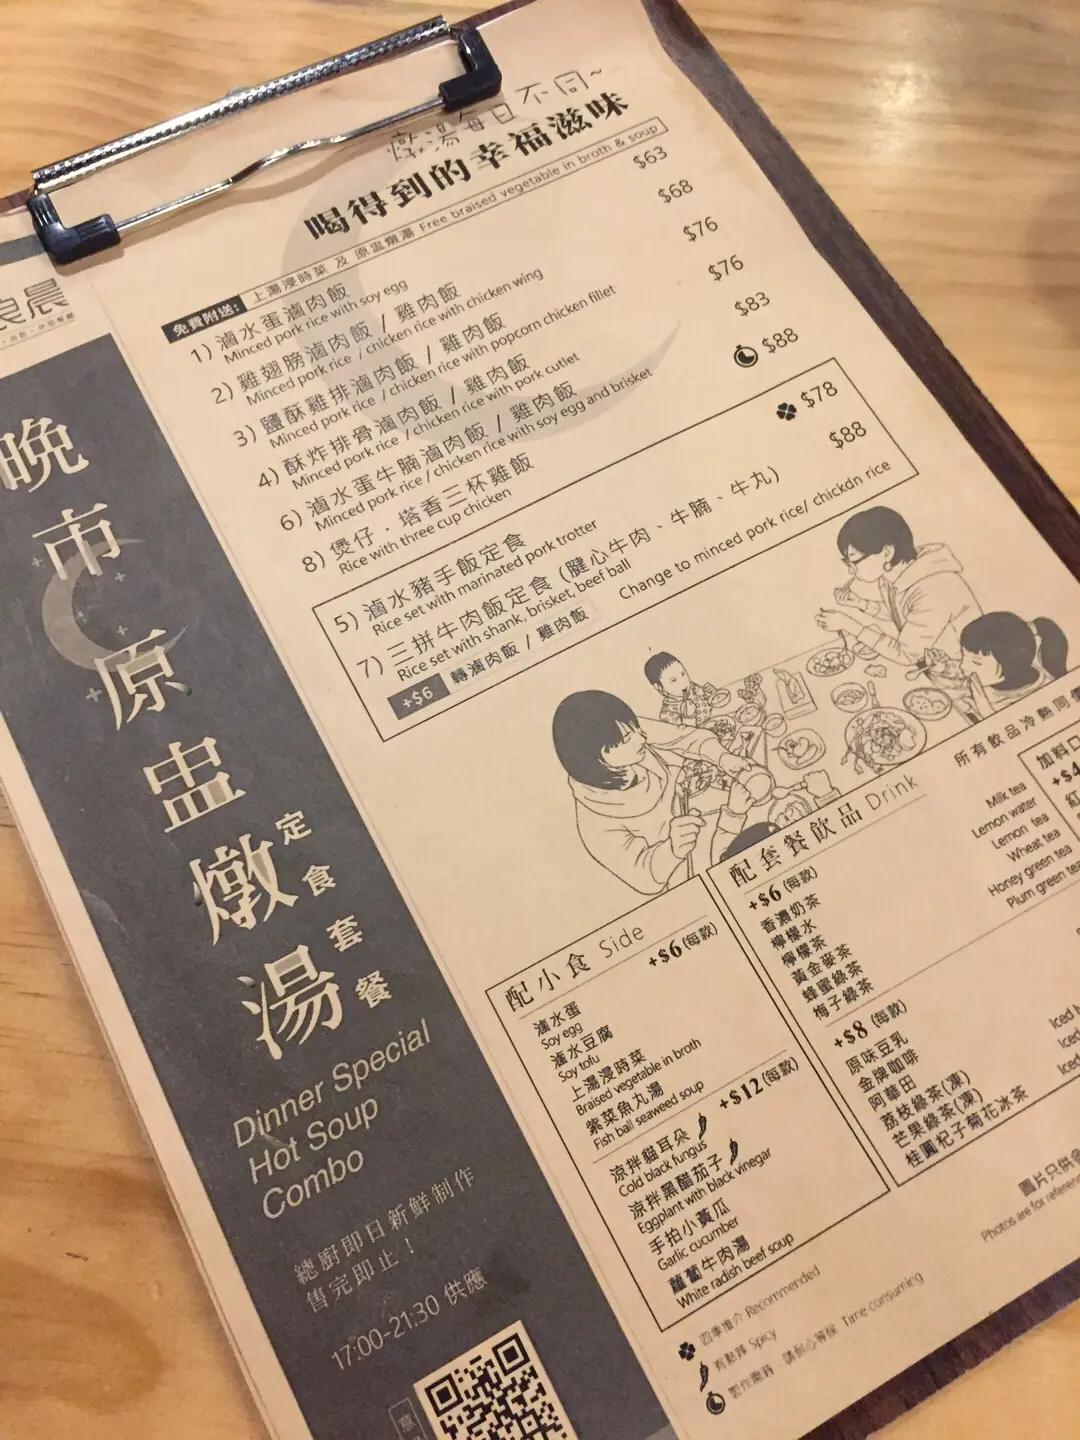 良晨
晚市原盅燉湯
定食套餐
Dinner Special
Hot Soup
Combo
總廚即日新鮮制作
售完即止！
17:00-21:30 供應
燉湯每日不同~
喝得到的幸福滋味
免費附送: 上湯浸時菜 及 原盅燉湯 Free braised vegetable in broth & soup
1) 滷水蛋滷肉飯 $63
Minced pork rice with soy egg
2) 雞翅膀滷肉飯 / 雞肉飯 $68
Minced pork rice / chicken rice with chicken wing
3) 鹽酥雞排滷肉飯 / 雞肉飯 $76
Minced pork rice / chicken rice with popcorn chicken fillet
4) 酥炸排骨滷肉飯 / 雞肉飯 $76
Minced pork rice / chicken rice with pork cutlet
6) 滷水蛋牛腩滷肉飯 / 雞肉飯 $83
Minced pork rice / chicken rice with soy egg and brisket
8) 煲仔・塔香三杯雞飯 $88
Rice with three cup chicken
5) 滷水豬手飯定食 $78
Rice set with marinated pork trotter
7) 三拼牛肉飯定食 (腱心牛肉、牛腩、牛丸) $88
Rice set with shank, brisket, beef ball
+$6 轉滷肉飯 / 雞肉飯 Change to minced pork rice/ chickdn rice
配小食 Side
+$6 (每款)
滷水蛋
Soy egg
滷水豆腐
Soy tofu
上湯浸時菜
Braised vegetable in broth
紫菜魚丸湯
Fish ball seaweed soup
+$12 (每款)
涼拌貓耳朵
Cold black fungus
涼拌黑醋茄子
Eggplant with black vinegar
手拍小黃瓜
Garlic cucumber
蘿蔔牛肉湯
White radish beef soup
配套餐飲品 Drink
所有飲品冷熱同價
+$6 (每款)
香濃奶茶 Milk tea
檸檬水 Lemon water
檸檬茶 Lemon tea
黃金麥茶 Wheat tea
蜂蜜綠茶 Honey green tea
梅子綠茶 Plum green tea
+$8 (每款)
原味豆乳
金牌咖啡
阿華田
荔枝綠茶(凍) Iced
芒果綠茶(凍) Iced
桂圓杞子菊花冰茶 Iced
加料
+$4
紅
圖片只供
Photos are for
四季推介 Recommended
有點辣 Spicy
製作需時，請耐心等候 Time consuming